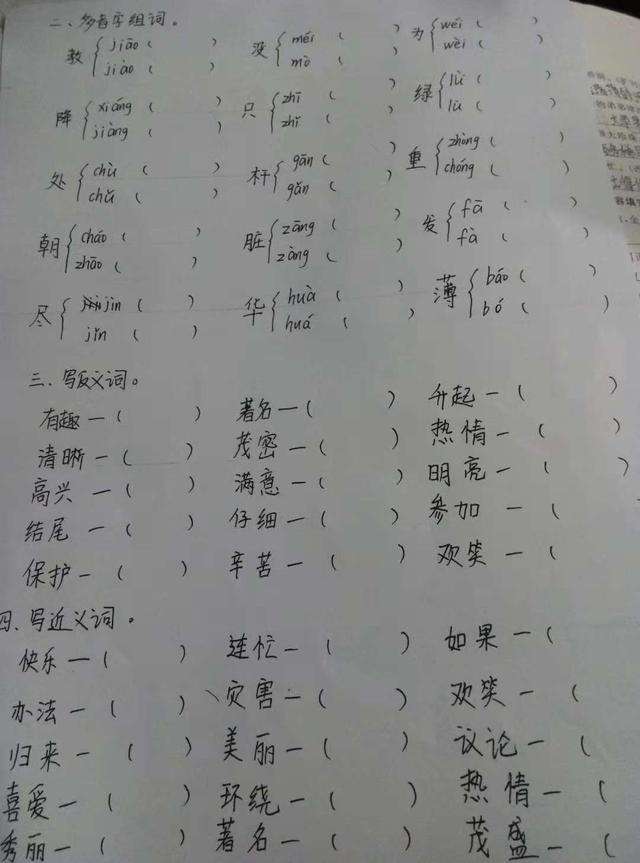 二、多音字组词。
教 { jiāo ( ) jiào ( ) 没 { méi ( ) mò ( ) 为 { wéi ( wèi (
降 { xiáng ( ) jiàng ( ) 只 { zhī ( ) zhǐ ( ) 绿 { lǜ ( ) lù ( )
处 { chù ( ) chǔ ( ) 杆 { gān ( ) gǎn ( ) 重 { zhòng ( ) chóng ( )
朝 { cháo ( ) zhāo ( ) 脏 { zāng ( ) zàng ( ) 发 { fā ( ) fà ( )
尽 { jìn ( ) jǐn ( ) 华 { huà ( ) huá ( ) 薄 { báo ( ) bó ( )
三、写反义词。
有趣—( ) 著名—( ) 升起—( )
清晰—( ) 茂密—( ) 热情—( )
高兴—( ) 满意—( ) 明亮—( )
结尾—( ) 仔细—( ) 参加—( )
保护—( ) 辛苦—( ) 欢笑—( )
四、写近义词。
快乐—( ) 连忙—( ) 如果—(
办法—( ) 灾害—( ) 欢笑—(
归来—( ) 美丽—( ) 议论—(
喜爱—( ) 环绕—( ) 热情—(
秀丽—( ) 著名—( ) 茂盛—(